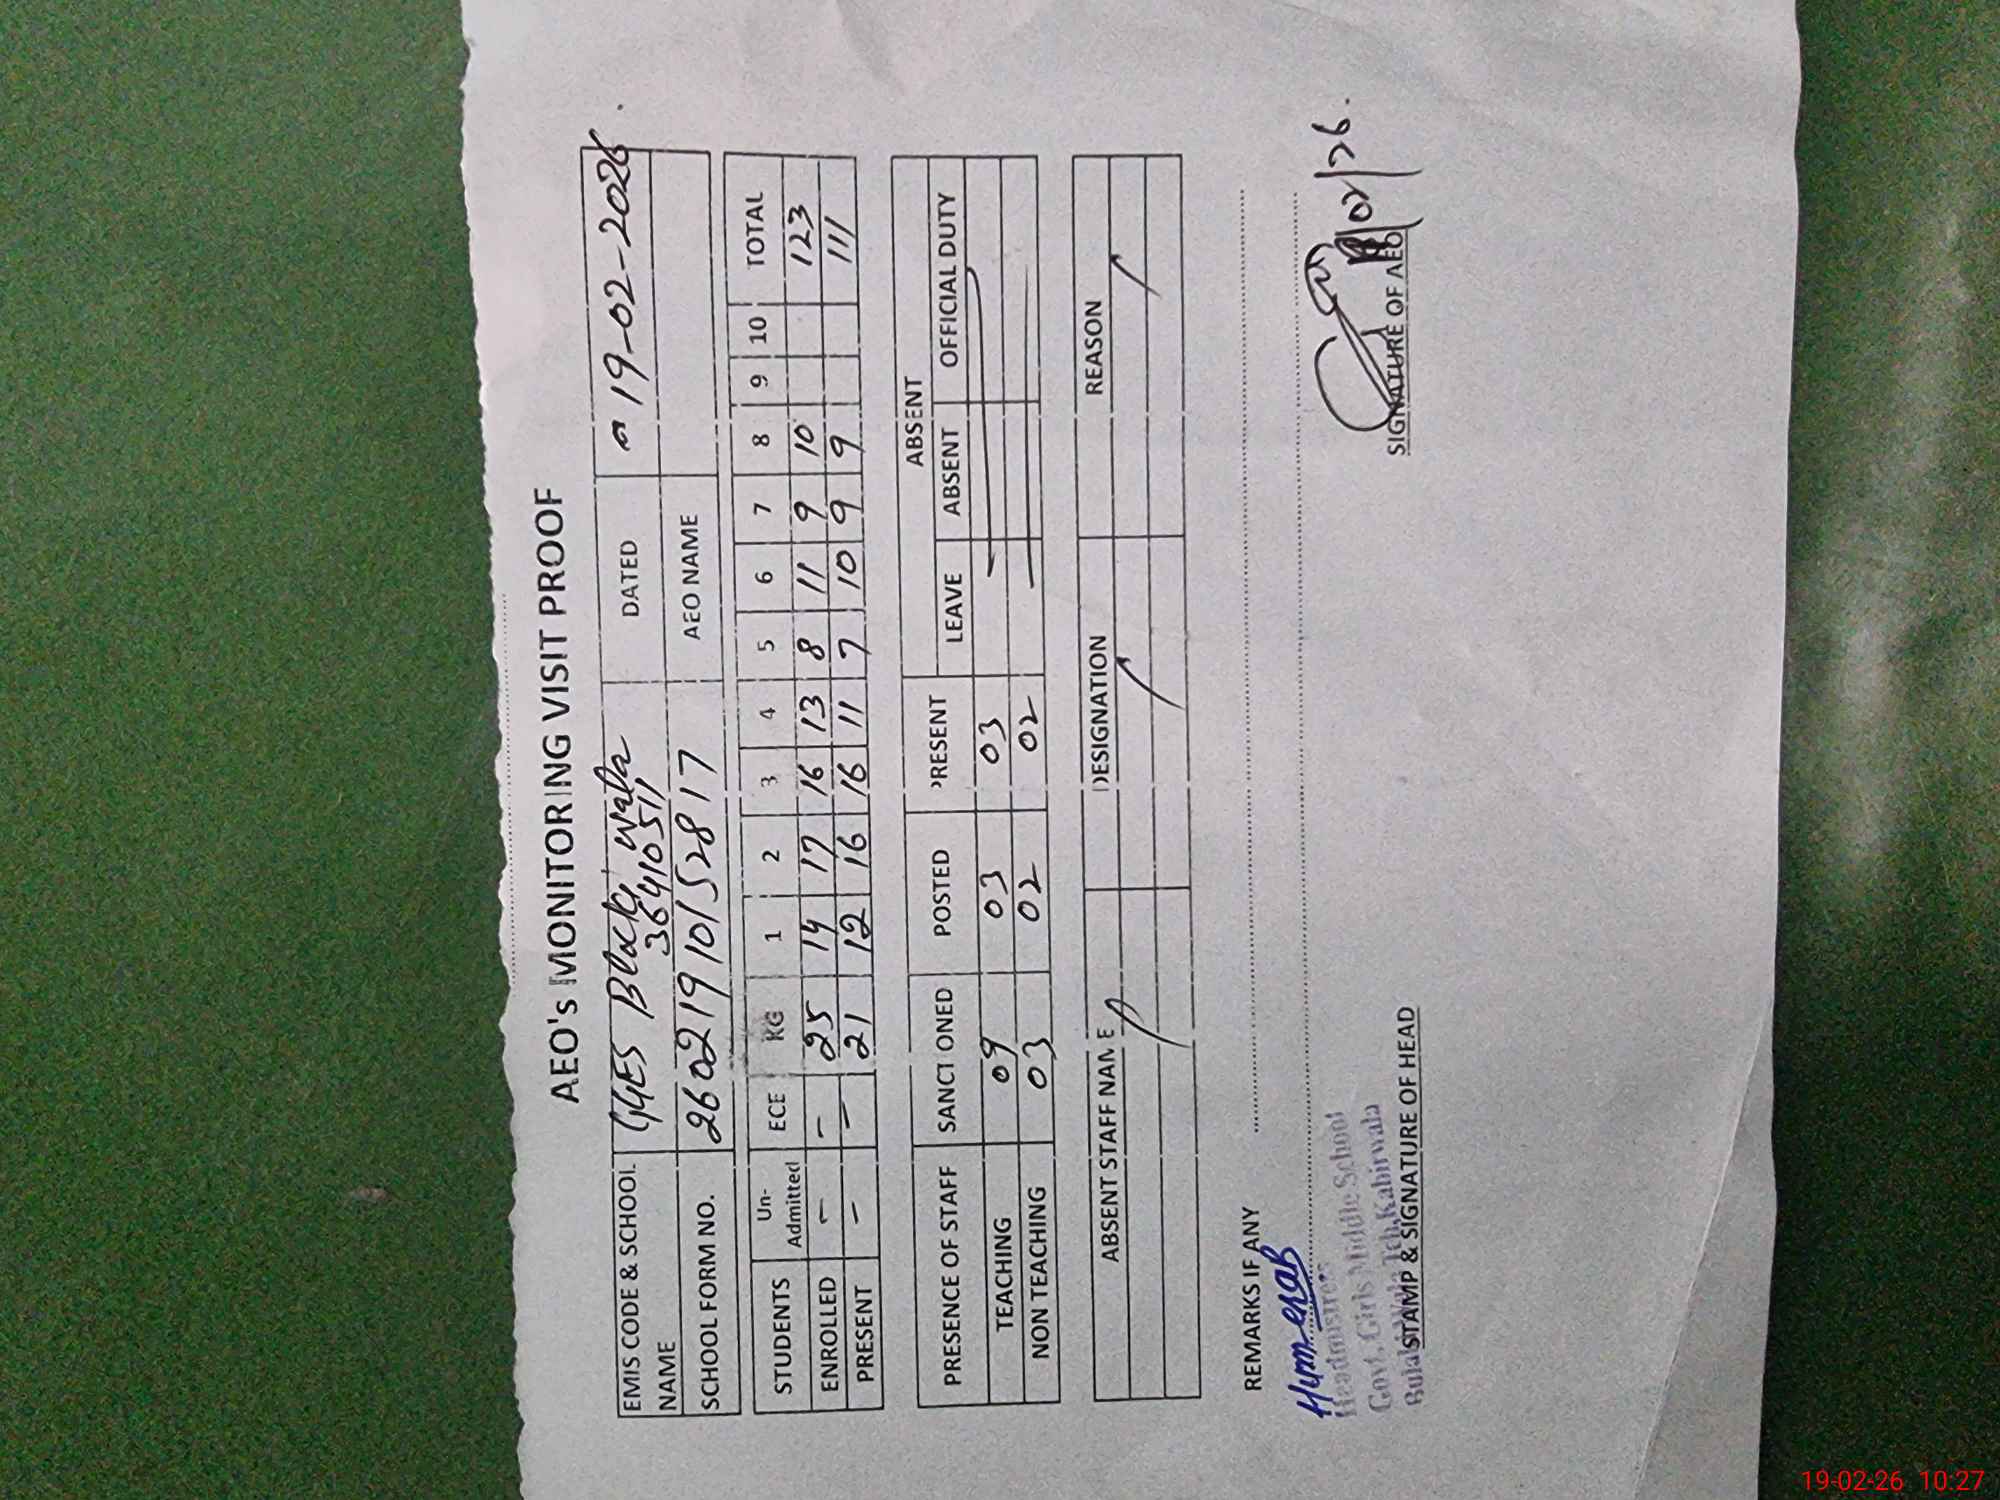 AEO's MONITORING VISIT PROOF
EMIS CODE & SCHOOL NAME GGES Wala 36410511 DATED 19-02-2026
SCHOOL FORM NO. 2602191015 2817 AEO NAME
STUDENTS Un-Admitted ECE KG 1 2 3 4 5 6 7 8 9 10 TOTAL
ENROLLED - - 25 14 17 16 13 8 11 9 10 123
PRESENT - - 21 12 16 16 11 7 10 9 9 111
PRESENCE OF STAFF SANCTIONED POSTED PRESENT ABSENT
LEAVE ABSENT OFFICIAL DUTY
TEACHING 09 03 03
NON TEACHING 03 02 02
ABSENT STAFF NAME DESIGNATION REASON
REMARKS IF ANY
Headmistress
Govt. Girls Middle School
Wala Teh. Kabirwala
STAMP & SIGNATURE OF HEAD
02/26.
SIGNATURE OF AEO
19-02-26 10:27